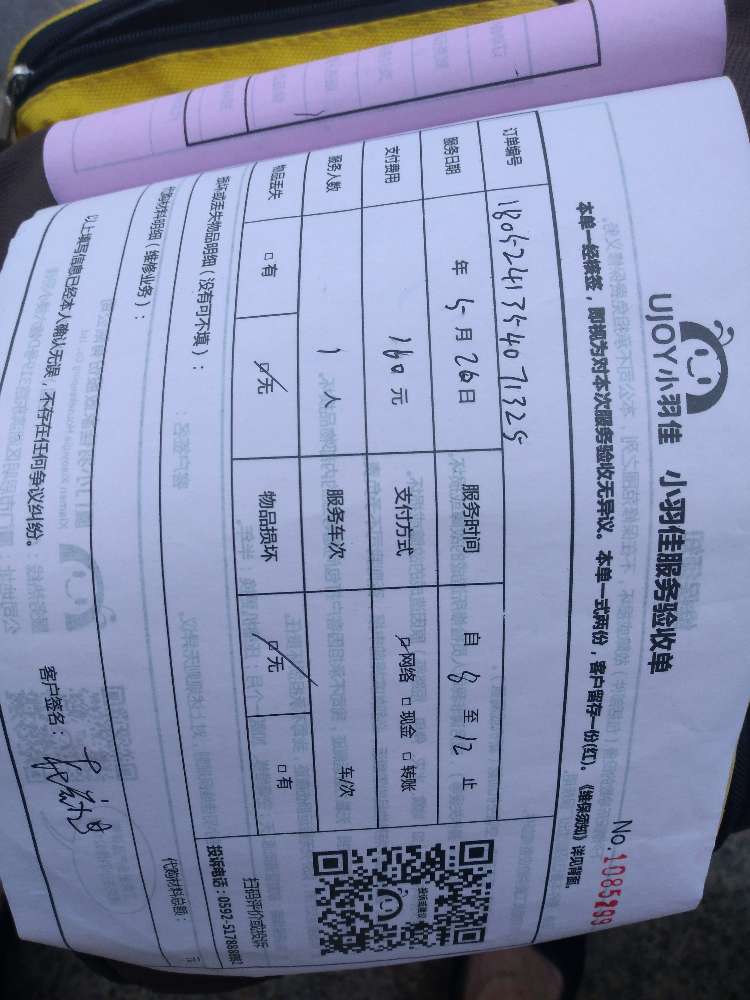 UJOY小羽佳 小羽佳服务验收单
No.1085299
本单一经接签，即视为对本次服务验收无异议。本单一式两份，客户留存一份(红)。《维保须知》详见背面。
订单编号 1805241354071325
服务日期 年 5 月 26 日 服务时间 自 8 至 12 止
支付费用 160 元 支付方式 网络 现金 转账
服务人数 1 人 服务车次 车/次
物品丢失 有 无 物品损坏 无 有
损坏或丢失物品明细（没有可不填）：
扫码评价或投诉
代购材料明细（维修业务）：
代购材料总额： 元
以上填写信息已经本人确认无误，不存在任何争议纠纷。
客户签名：